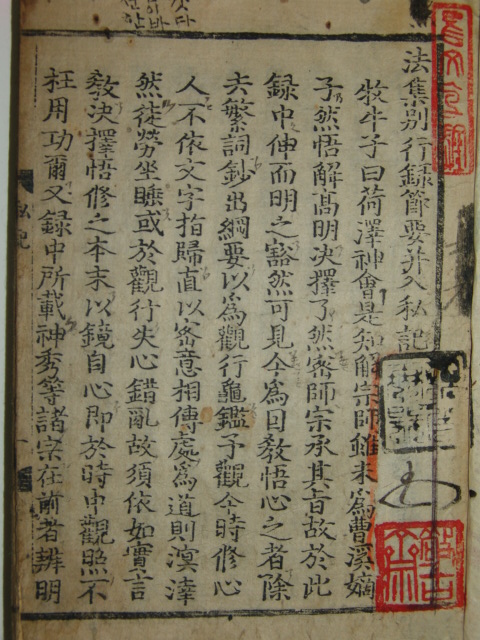 法集別行錄節要并入私記
牧牛子曰荷澤神會是知解宗師雖未爲曹溪嫡
子然悟解高明决擇了然密師宗承其旨故於此
録中伸而明之豁然可見今爲因敎悟心之者除
去繁詞鈔出綱要以爲觀行龜鑑予觀今時修心
人不依文字指歸直以密意相傳處爲道則溟涬
然徒勞坐睡或於觀行失心錯亂故須依如實言
敎决擇悟修之本末以鏡自心即於時中觀照不
枉用功爾又録中所載神秀等諸宗在前者辨明
私記